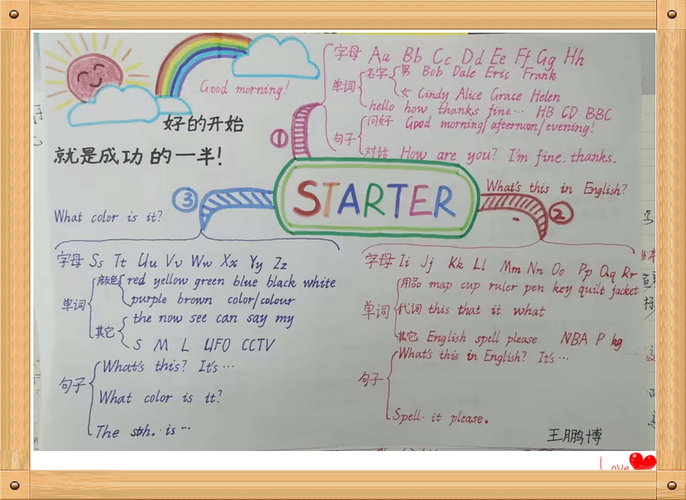 Good morning!
好的开始
就是成功的一半!
STARTER
①
字母 Aa Bb Cc Dd Ee Ff Gg Hh
单词
名字
男 Bob Dale Eric Frank
女 Cindy Alice Grace Helen
hello how thanks fine… HB CD BBC
句子
问好 Good morning/afternoon/evening!
对话 How are you? I'm fine, thanks.
②
What's this in English?
字母 Ii Jj Kk Ll Mm Nn Oo Pp Qq Rr
单词
用品 map cup ruler pen key quilt jacket
代词 this that it what
其它 English spell please NBA P kg
句子
What's this in English? It's…
Spell it please.
③
What color is it?
字母 Ss Tt Uu Vv Ww Xx Yy Zz
单词
颜色 red yellow green blue black white
purple brown color/colour
其它
the now see can say my
S M L UFO CCTV
句子
What's this? It's…
What color is it?
The sth. is…
王鹏博
Love